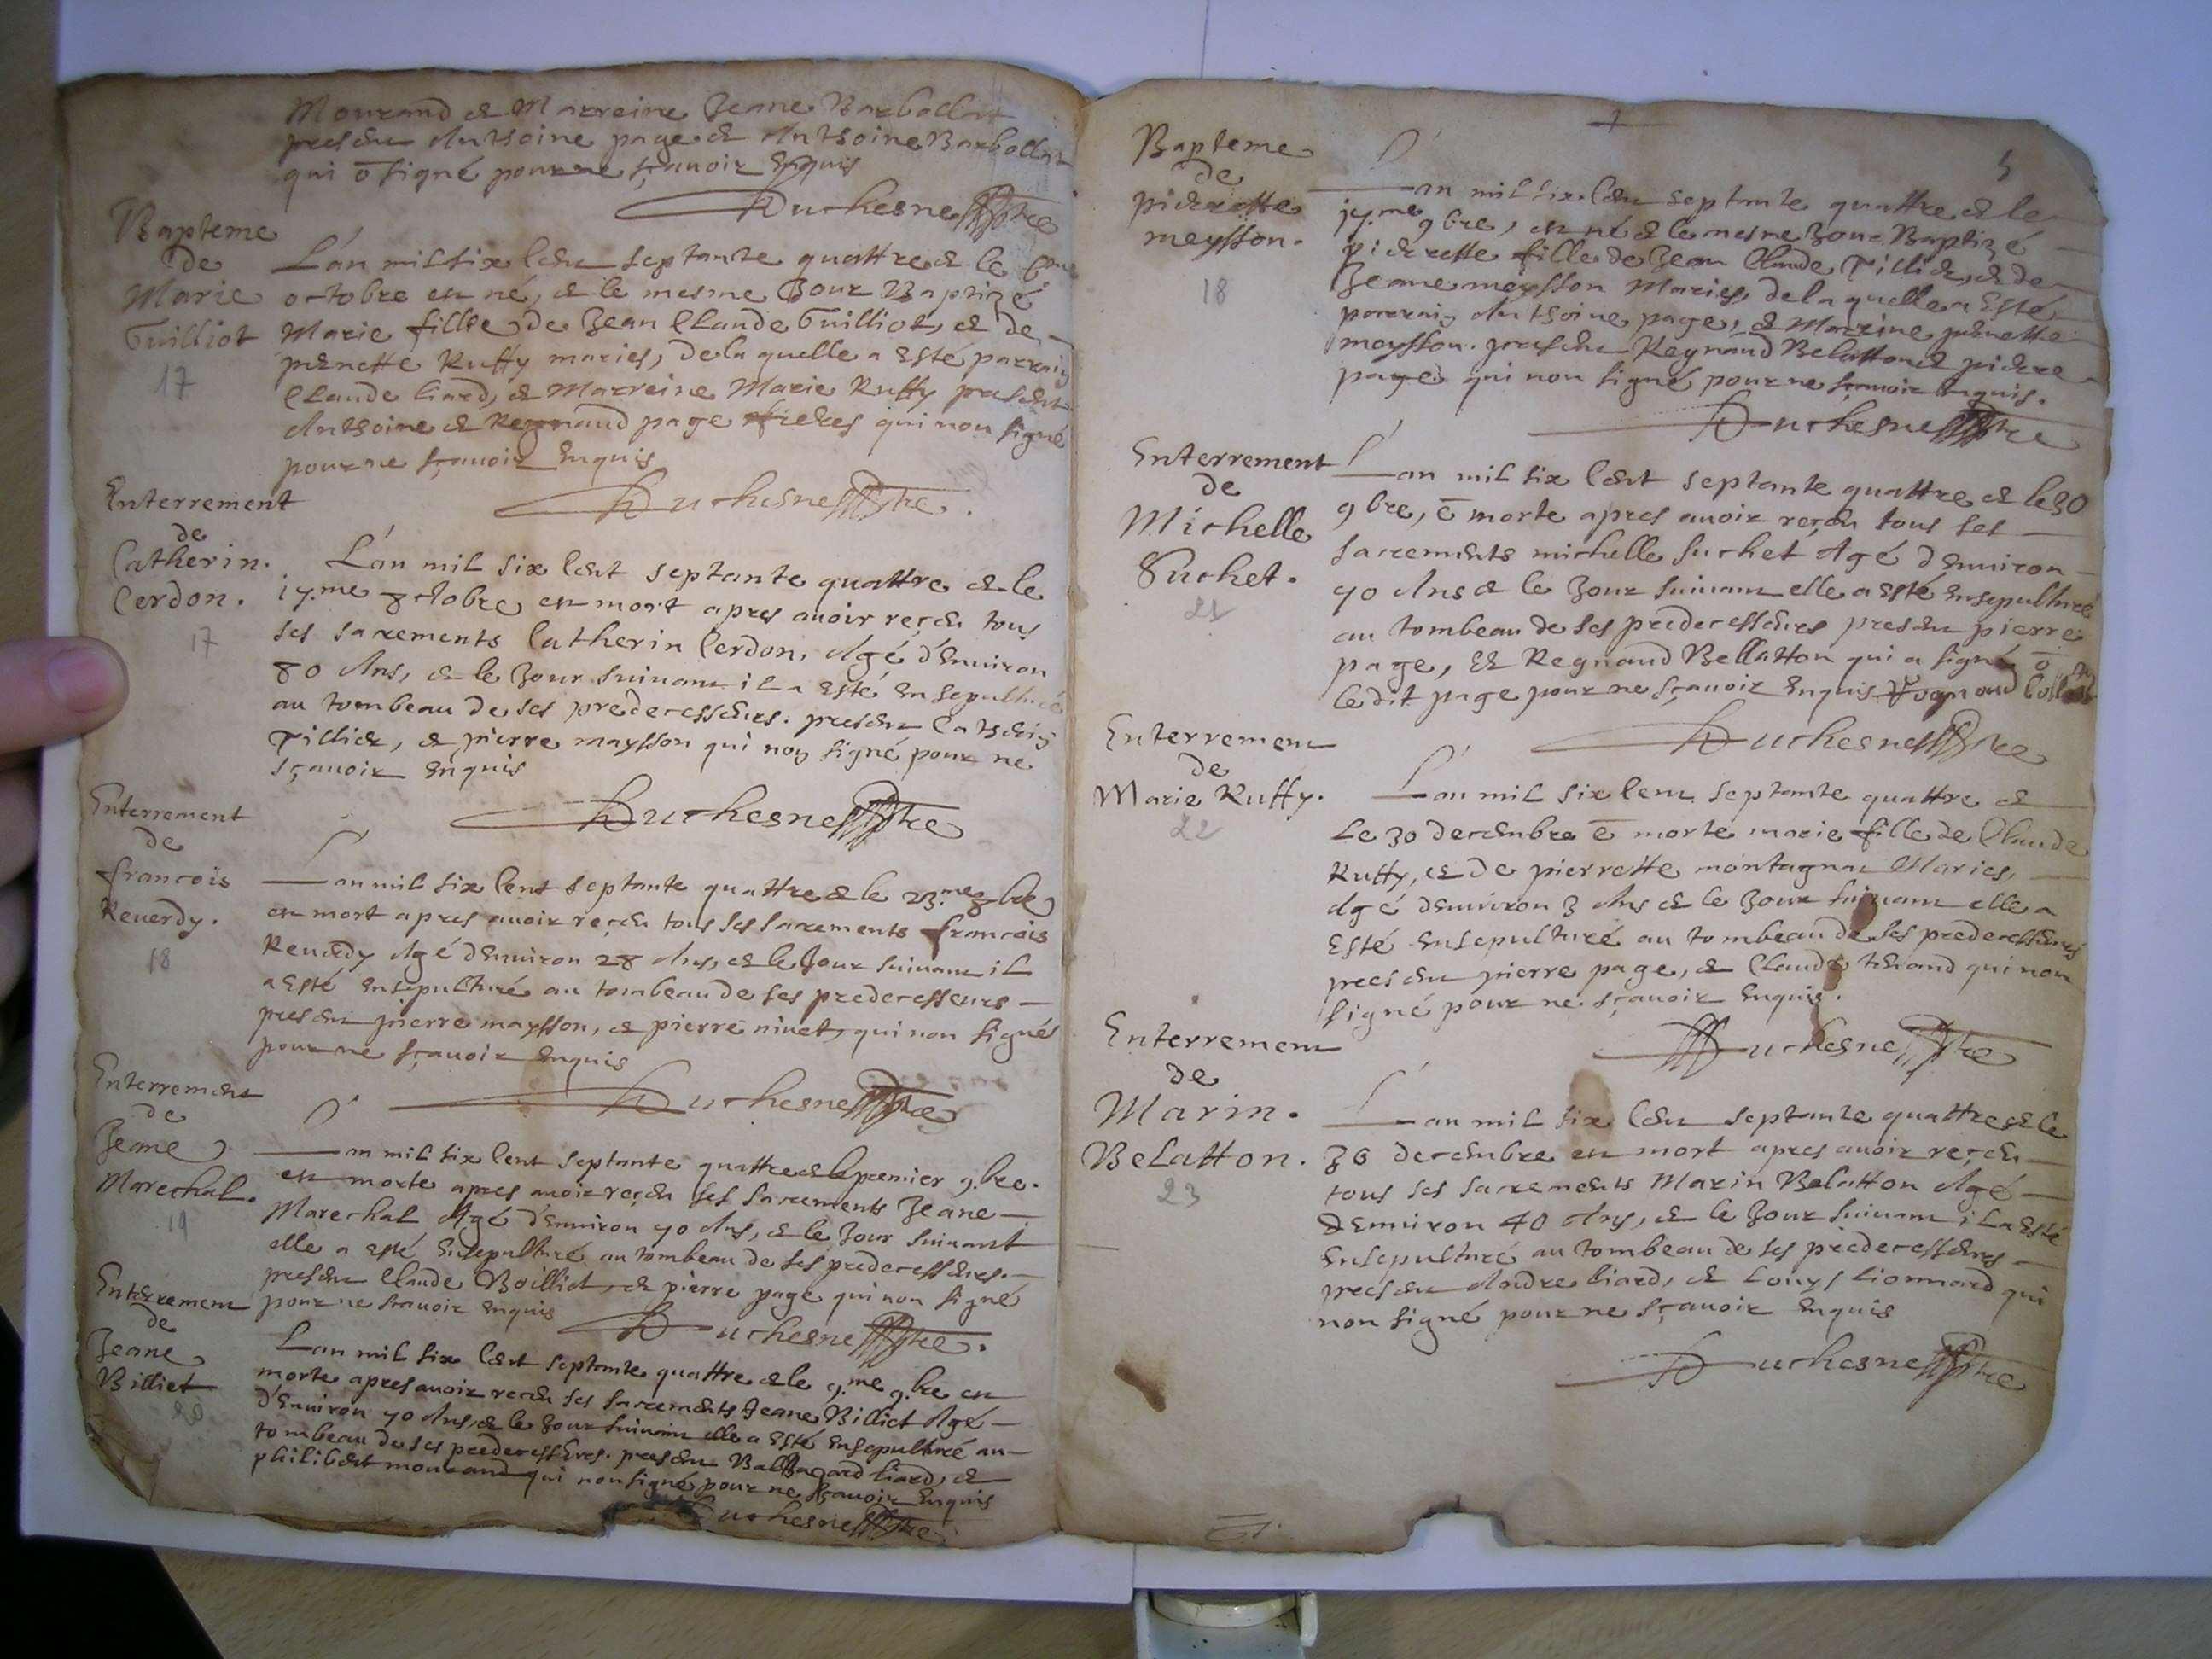 Mourand et Marreine Jeane Barbollat
present Anthoine page et Anthoine Barbollat
qui õ signé pour ne sçavoir Enquis
Duchesne Pbtre
Bapteme
de
Marie
Guilliot
17
L'an mil six Cent septante quattre et le 6me
octobre est né, et le mesme Jour Baptizé
Marie fille de Jean Claude Guilliot, et de
pernette Ruffy mariés, de la quelle a Esté parrain
Claude Liard, et Marreine Marie Ruffy present
Anthoine et Regnaud page freres qui non signé
pour ne sçavoir Enquis
Duchesne Pbtre.
Enterrement
de
Catherin
Cerdon.
17
L'an mil six Cent septante quattre et le
17.me 8ctobre est mort apres avoir reçeu tous
ses sacrements Catherin Cerdon, Agé d'Environ
80 Ans, et le Jour suivant il a Esté Ensepulturé
au tombeau de ses predecesseurs. present Catherin
Tillier, et pierre maysson qui non signé pour ne
sçavoir Enquis
Duchesne Pbtre
Enterrement
de
francois
Reverdy.
18
Lan mil six Cent septante quattre et le 23.me 8bre
est mort apres avoir reçeu tous ses sacrements francois
Reverdy Agé d'Environ 28 Ans, et le Jour suivant il
a Esté Ensepulturé au tombeau de ses predecesseurs
present pierre maysson, et pierre nivet, qui non signés
pour ne sçavoir Enquis
Duchesne Pbtre
Enterrement
de
Jeane
Marechal.
19
Lan mil six Cent septante quattre et le premier 9.bre.
est morte apres avoir reçeu ses sacrements Jeane
Marechal Agé d'Environ 70 Ans, et le Jour suivant
elle a esté Ensepulturé au tombeau de ses predecesseurs.
present Claude Boilliot, et pierre page qui non signé
pour ne sçavoir Enquis
Duchesne Pbtre.
Enterrement
de
Jeane
Billiet
20
Lan mil six Cent septante quattre et le 9.me 9.bre est
morte apres avoir receu ses sacrements Jeane Billiet Agé
d'Environ 70 Ans, et le Jour suivant elle a Esté Ensepulturé au
tombeau de ses predecesseurs. present Balthazard Liard, et
philibert mourand qui non signé pour ne sçavoir Enquis
Duchesne Pbtre
5
Bapteme
de
pierrette
meysson.
18
Lan mil six Cent septante quattre et le
17.me 9bre, est né et le mesme Jour Baptizé
pierrette fille de Jean Claude Tillier, et de
Jeane meysson Mariés, de la quelle a Esté
parrain Anthoine page, et Marrine pernette
meysson. present Regnaud Belatton et pierre
page qui non signé pour ne sçavoir Enquis.
Duchesne Pbtre
Enterrement
de
Michelle
Suchet.
21
Lan mil six Cent septante quattre et le 30
9bre, ẽ morte apres avoir reçeu tous ses
sacrements michelle Suchet Agé d'Environ
70 Ans et le Jour suivant elle a Esté Ensepulturé
au tombeau de ses predecesseurs present pierre
page, et Regnaud Bellatton qui a signé õ
ledit page pour ne sçavoir Enquis
Duchesne Pbtre
Enterrement
de
Marie Ruffy.
22
Lan mil six Cent septante quattre et
Le 30 decembre ẽ morte marie fille de Claude
Ruffy, et de pierrette montagnat Mariés,
Agé d'Environ 3 Ans et le Jour suivant elle a
Esté Ensepulturé au tombeau de ses predecesseurs
present pierre page, et Claude tenand qui non
signé pour ne sçavoir Enquis.
Duchesne Pbtre
Enterrement
de
Marin.
Belatton.
23
Lan mil six Cent septante quattre et le
30 decembre est mort apres avoir reçeu
tous ses sacrements Marin Belatton Agé
d'Environ 40 Ans, et le Jour suivant il a Esté
Ensepulturé au tombeau de ses predecesseurs
present Andre Liard, et Louys Lionnard qui
non signé pour ne sçavoir Enquis
Duchesne Pbtre